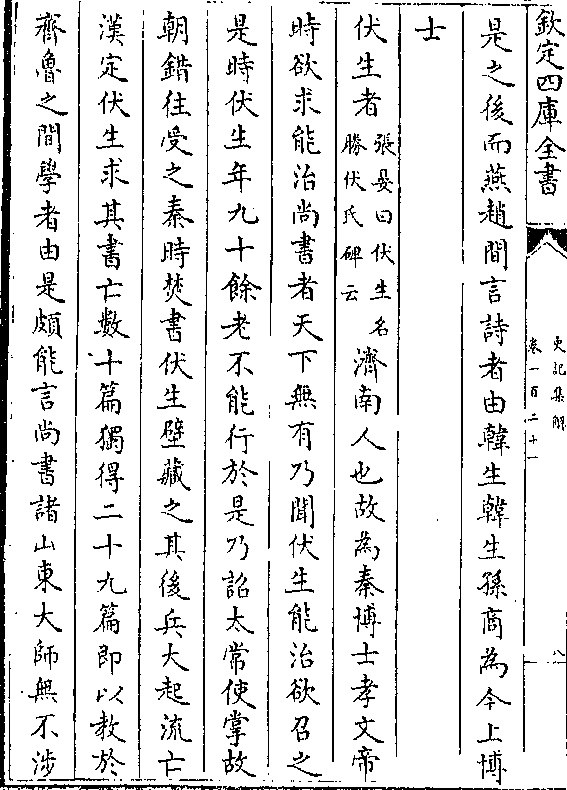 欽定四庫全書
史記集解
卷一百二十一
八
是之後而燕趙間言詩者由韓生韓生孫商為今上博
士
伏生者張晏曰伏生名勝伏氏碑云濟南人也故為秦博士孝文帝
時欲求能治尚書者天下無有乃聞伏生能治欲召之
是時伏生年九十餘老不能行於是乃詔太常使掌故
朝錯往受之秦時焚書伏生壁藏之其後兵大起流亡
漢定伏生求其書亡數十篇獨得二十九篇即以教於
齊魯之間學者由是頗能言尚書諸山東大師無不涉